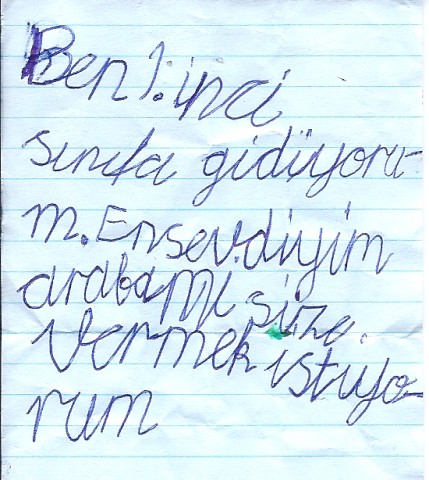 Ben 1.inci
sınıfa gidiyoru-
m. En sevdiyim
arabamı size.
Vermek istiyo-
rum